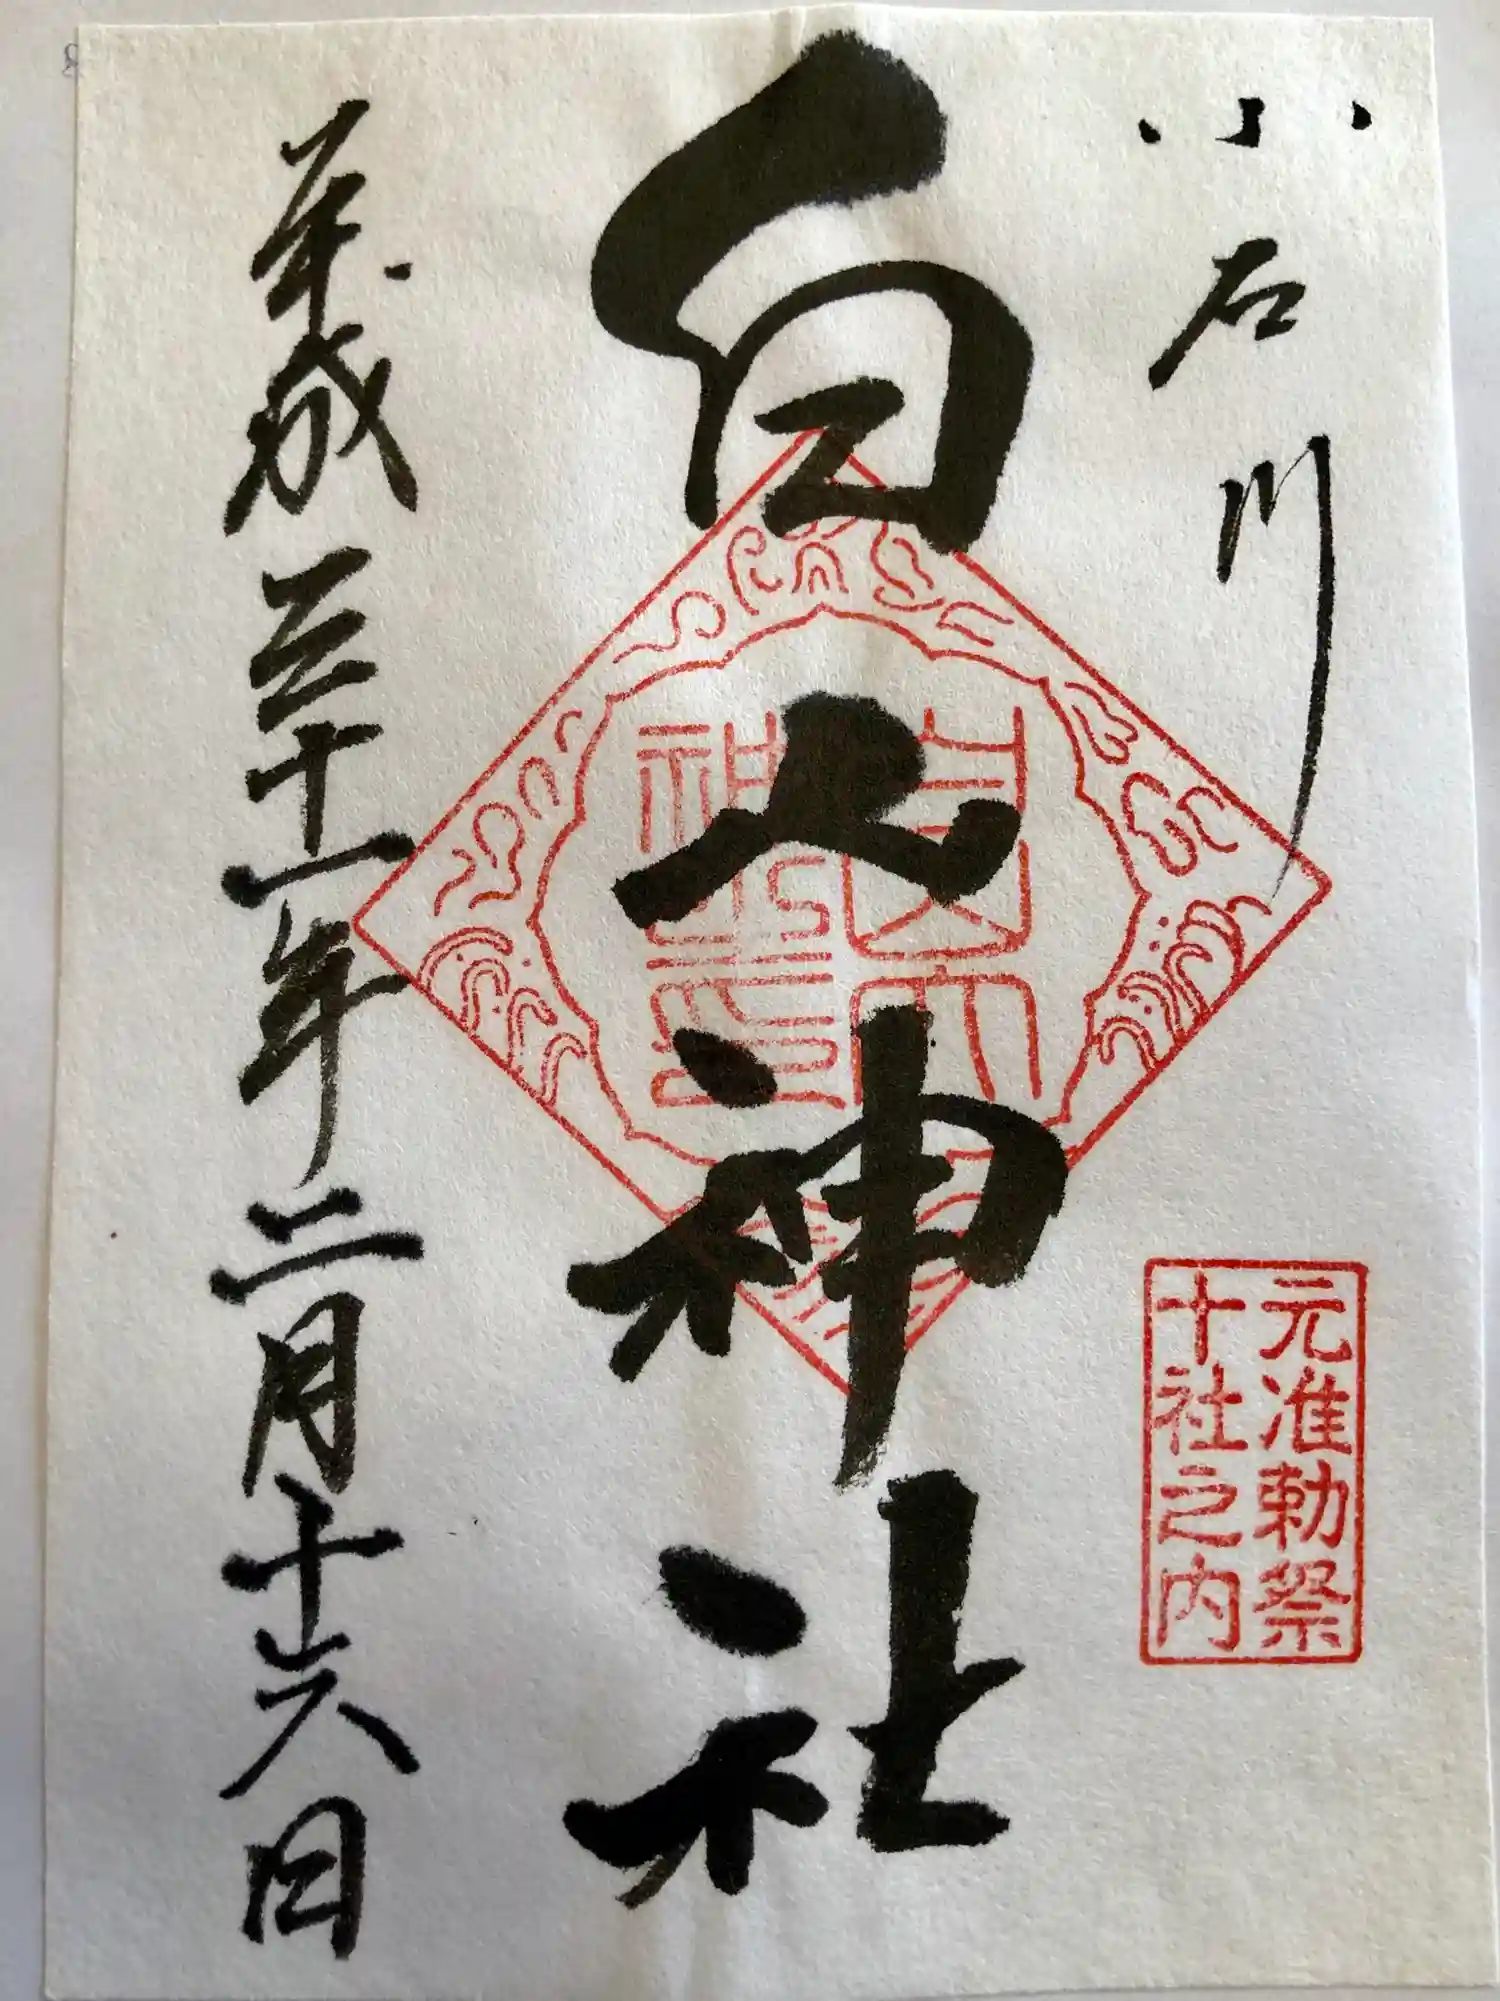 小石川
元准勅祭
十社之内
白山神社
平成三十一年二月十六日